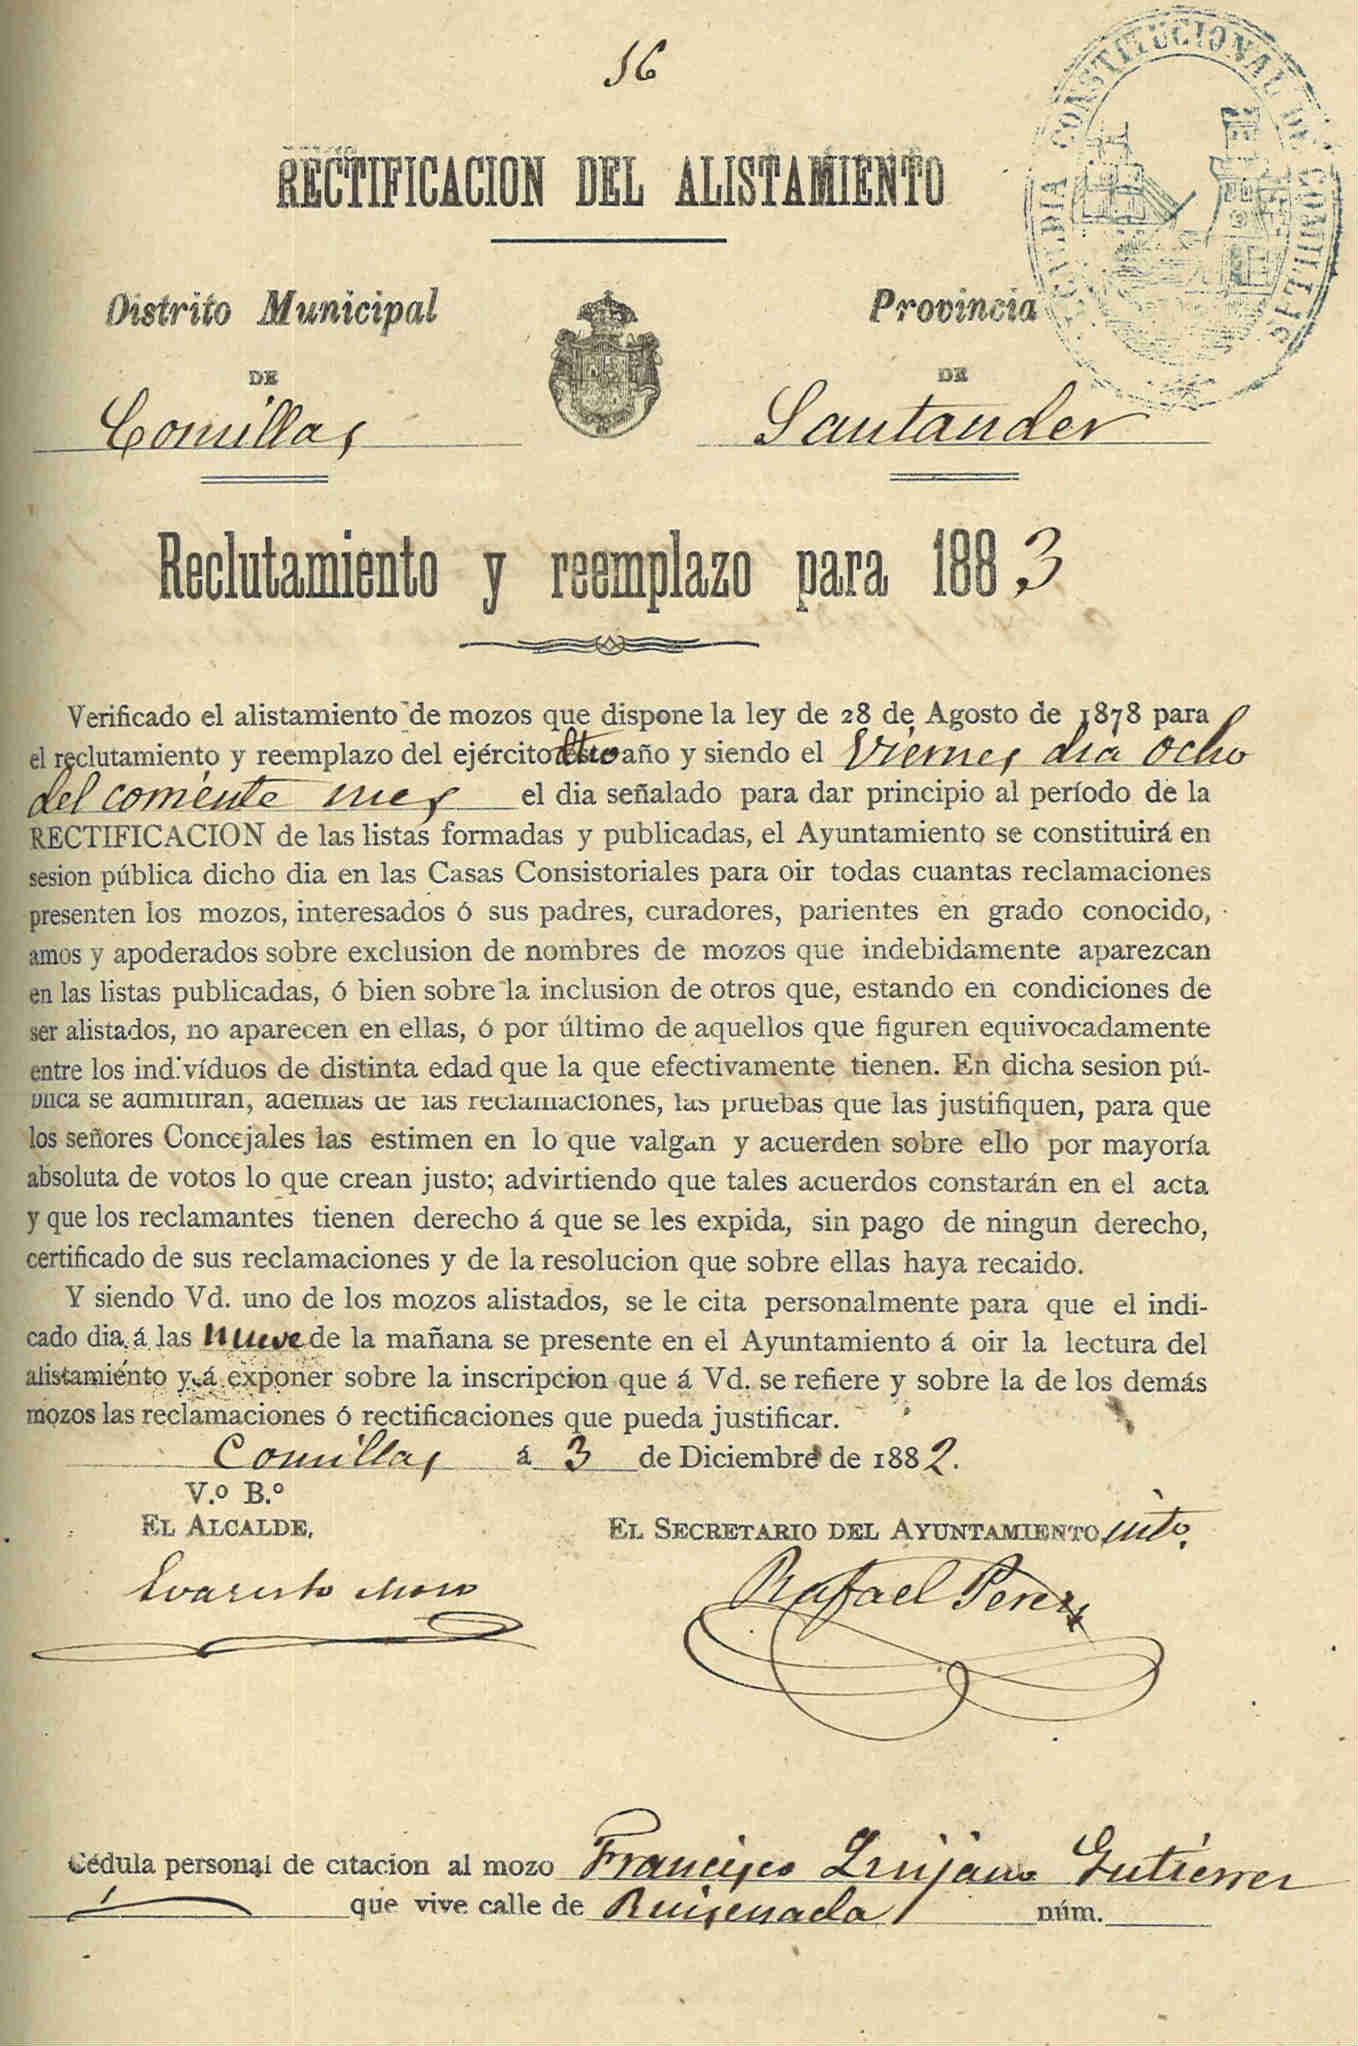 16
ALCALDIA CONSTITUCIONAL DE COMILLAS
RECTIFICACION DEL ALISTAMIENTO
Distrito Municipal
Provincia
DE
DE
Comillas
Santander
Reclutamiento y reemplazo para 1883
Verificado el alistamiento de mozos que dispone la ley de 28 de Agosto de 1878 para
el reclutamiento y reemplazo del ejército dho año y siendo el Viernes dia ocho
del corriente mes el dia señalado para dar principio al período de la
RECTIFICACION de las listas formadas y publicadas, el Ayuntamiento se constituirá en
sesion pública dicho dia en las Casas Consistoriales para oir todas cuantas reclamaciones
presenten los mozos, interesados ó sus padres, curadores, parientes en grado conocido,
amos y apoderados sobre exclusion de nombres de mozos que indebidamente aparezcan
en las listas publicadas, ó bien sobre la inclusion de otros que, estando en condiciones de
ser alistados, no aparecen en ellas, ó por último de aquellos que figuren equivocadamente
entre los individuos de distinta edad que la que efectivamente tienen. En dicha sesion pú-
blica se admitirán, además de las reclamaciones, las pruebas que las justifiquen, para que
los señores Concejales las estimen en lo que valgan y acuerden sobre ello por mayoría
absoluta de votos lo que crean justo; advirtiendo que tales acuerdos constarán en el acta
y que los reclamantes tienen derecho á que se les expida, sin pago de ningun derecho,
certificado de sus reclamaciones y de la resolucion que sobre ellas haya recaido.
Y siendo Vd. uno de los mozos alistados, se le cita personalmente para que el indi-
cado dia á las nueve de la mañana se presente en el Ayuntamiento á oir la lectura del
alistamiento y á exponer sobre la inscripcion que á Vd. se refiere y sobre la de los demás
mozos las reclamaciones ó rectificaciones que pueda justificar.
Comillas á 3 de Diciembre de 1882.
V.º B.º
EL ALCALDE,
EL SECRETARIO DEL AYUNTAMIENTO into.
Evaristo Moro
Rafael Perez
Cédula personal de citacion al mozo Francisco Quijano Gutierrez
que vive calle de Ruiseñada núm.